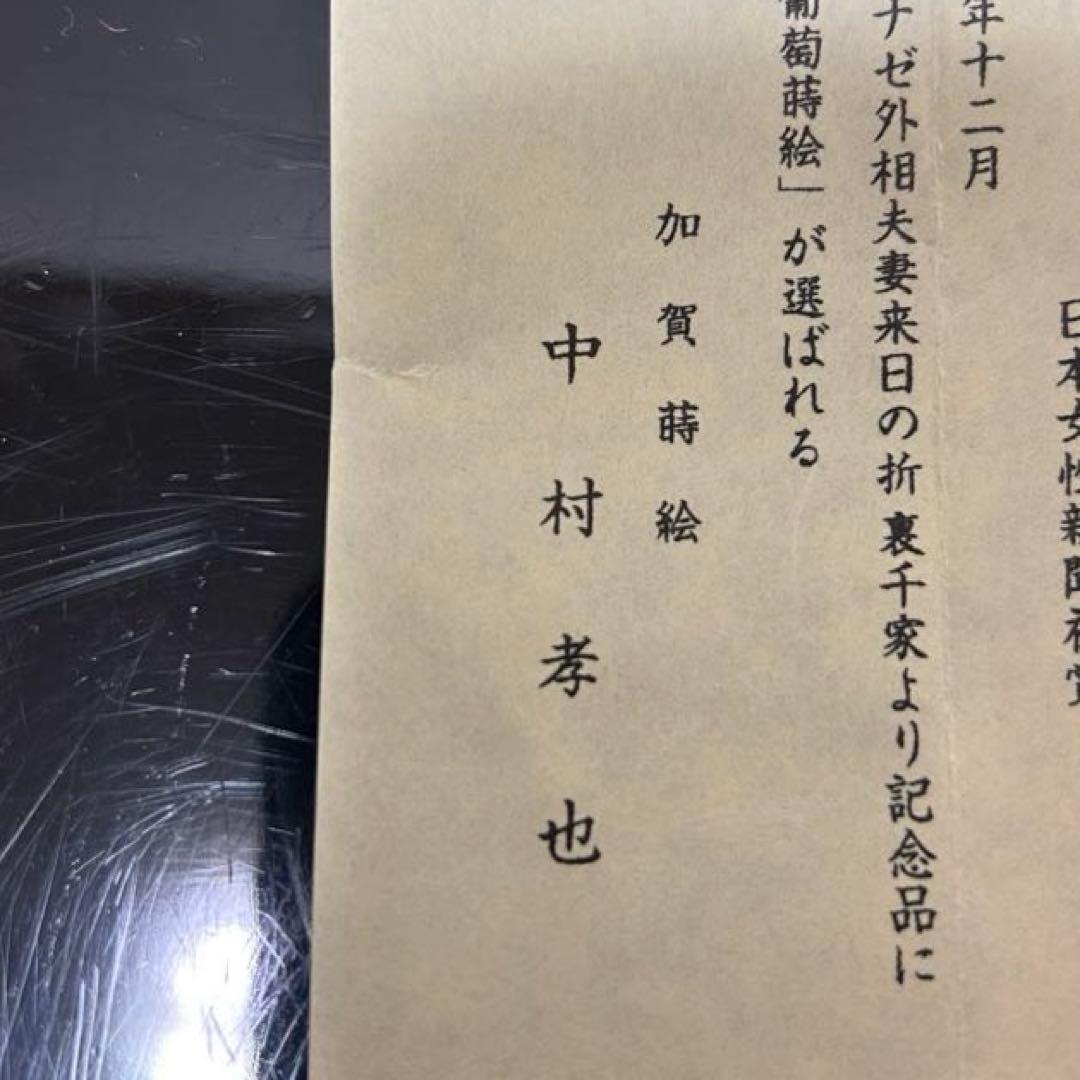 日本女性新聞社賞
年十二月
ナゼ外相夫妻来日の折 裏千家より記念品に
葡萄蒔絵」が選ばれる
加賀蒔絵
中村孝也